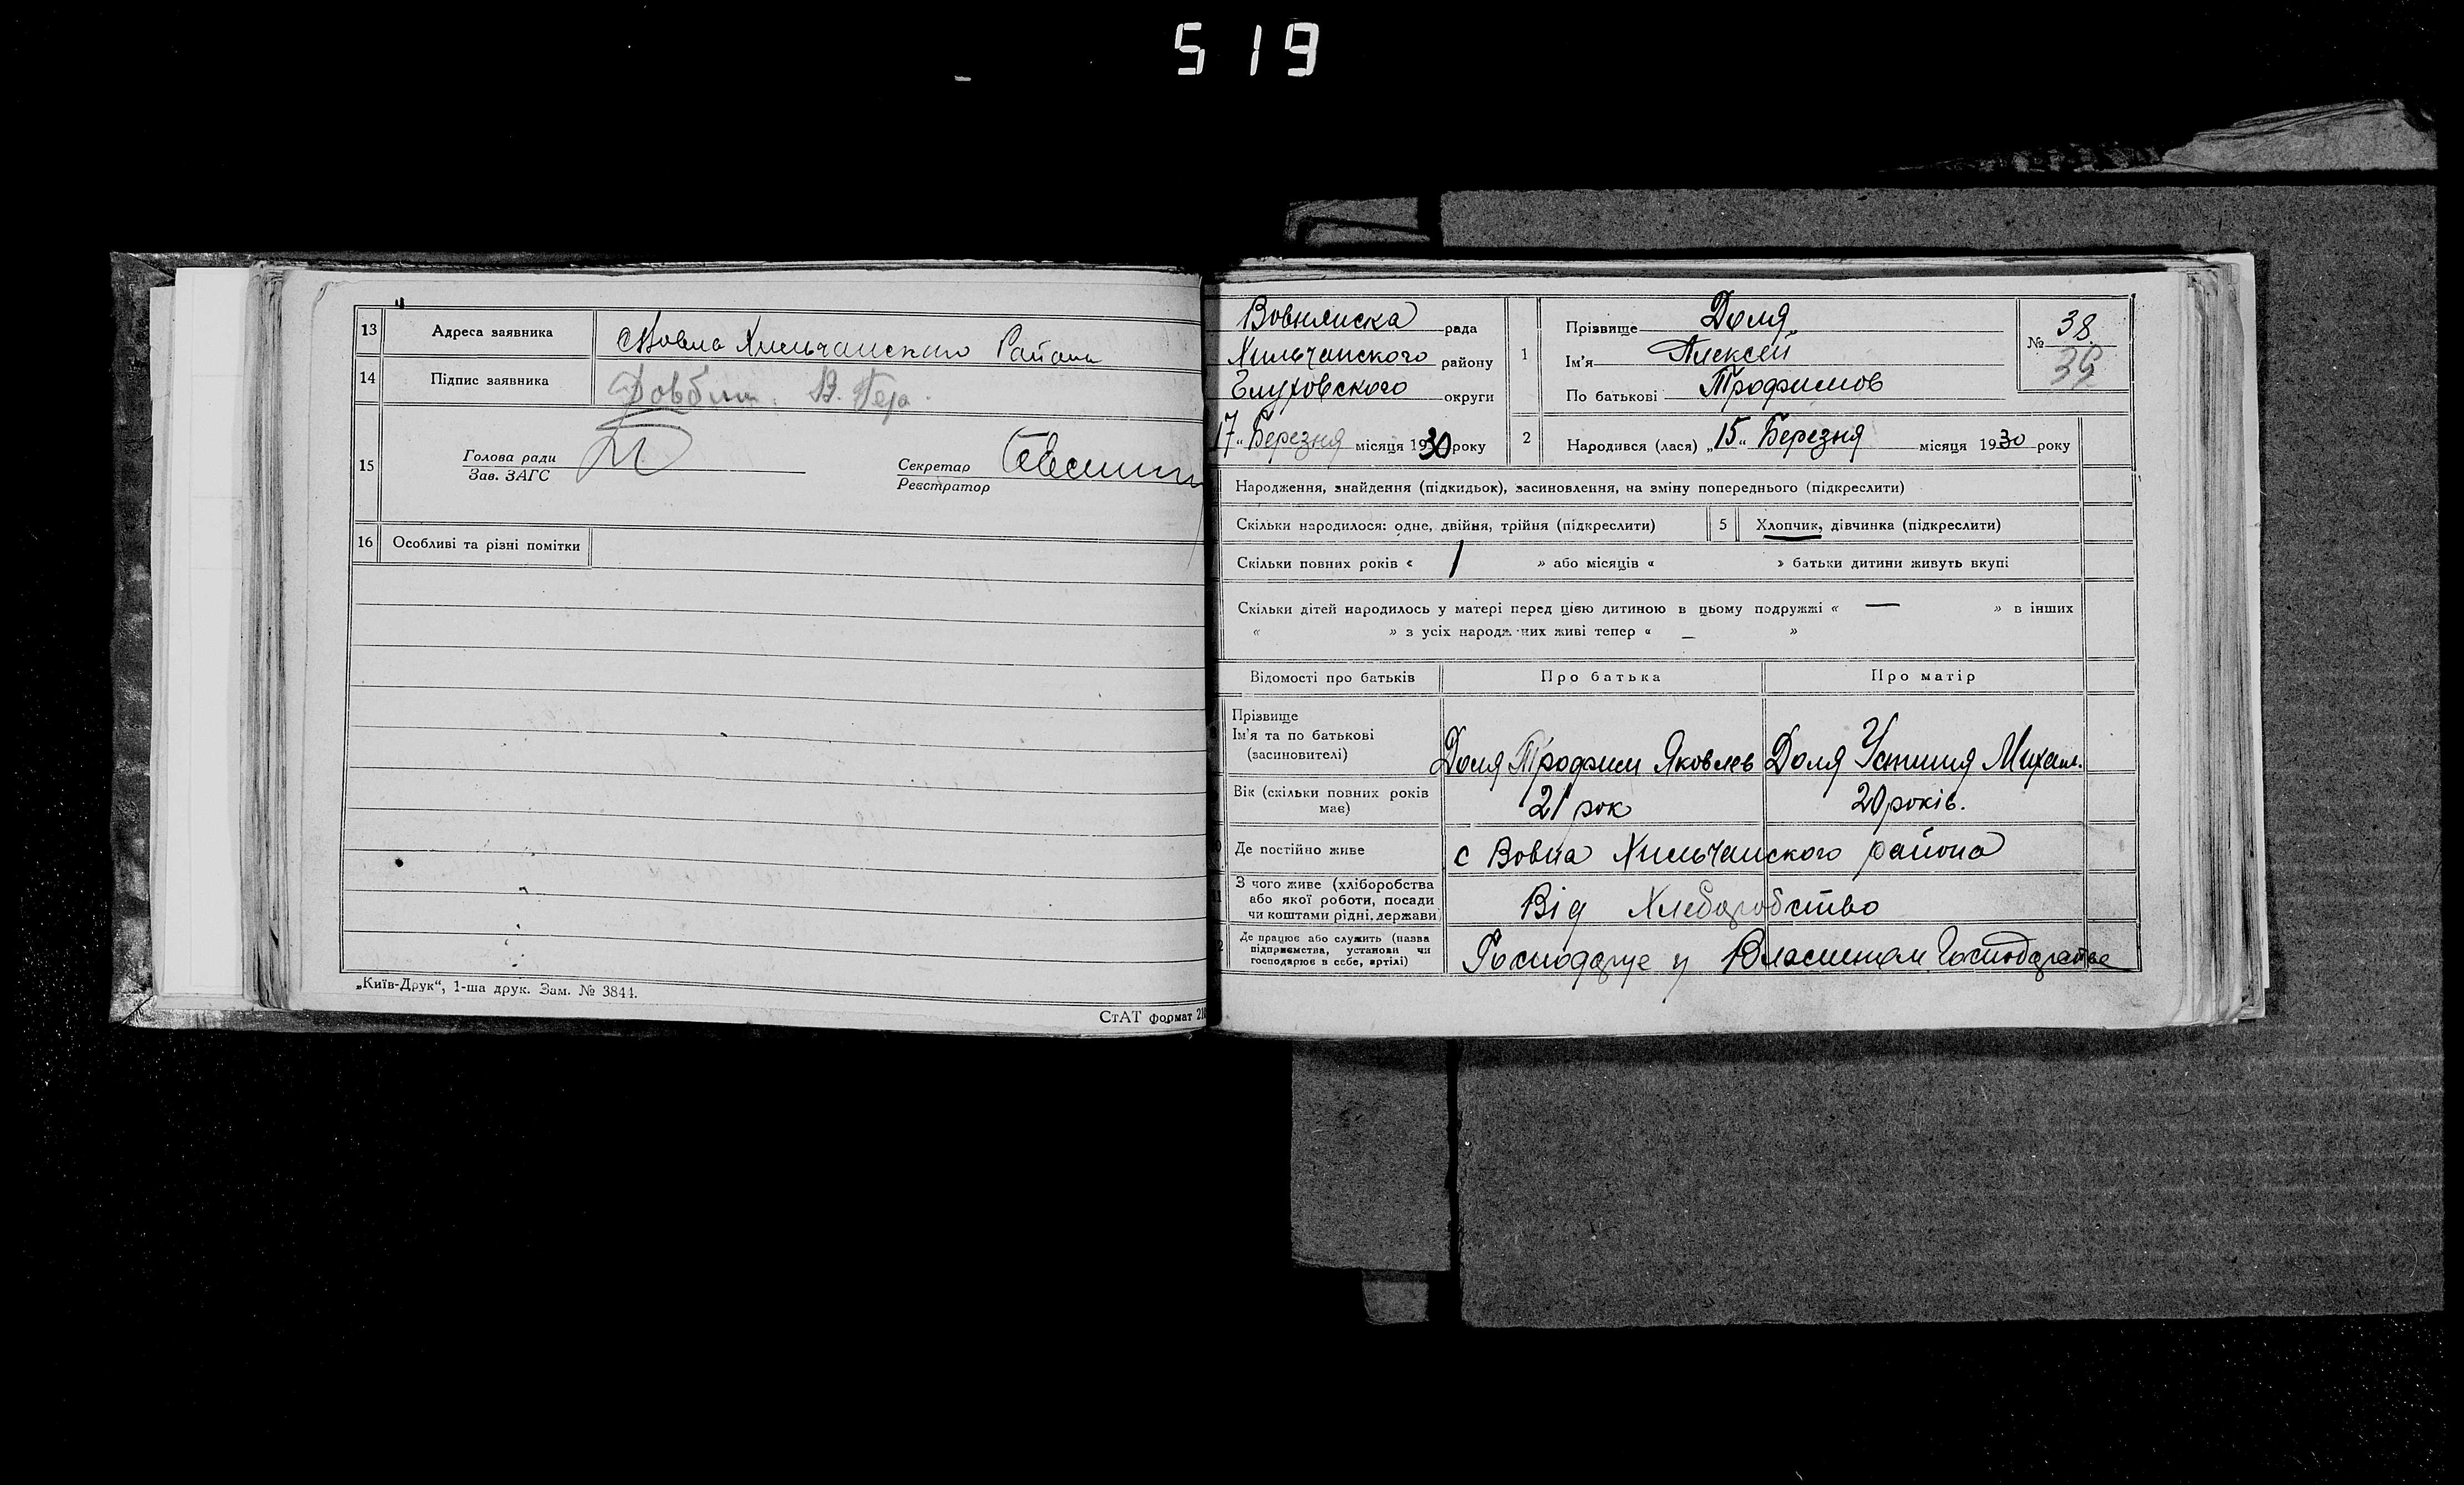 519
13 Адреса заявника с Вовна Хильчанского Района
14 Підпис заявника
15 Голова ради
Зав. ЗАГС
Секретар
Реєстратор
16 Особливі та різні помітки
„Київ-Друк“, 1-ша друк. Зам. № 3844.
СтАТ формат
Вовнянска рада
Хильчанского району
Глуховского округи
17 „ Березня місяця 1930 року
1 Прізвище Доля
Ім'я Алексей
По батькові Трофимов
№ 38
39
2 Народився (лася) „15„ Березня місяця 1930 року
Народження, знайдення (підкидьок), засиновлення, на зміну попереднього (підкреслити)
Скільки народилося: одне, двійня, трійня (підкреслити) 5 Хлопчик, дівчинка (підкреслити)
Скільки повних років « 1 » або місяців « » батьки дитини живуть вкупі
Скільки дітей народилось у матері перед цією дитиною в цьому подружжі « — » в інших
« » з усіх народж них живі тепер « – »
Відомості про батьків Про батька Про матір
Прізвище
Ім'я та по батькові
(засиновителі)
Доля Трофим Яковлев Доля Устиния Михаил.
Вік (скільки повних років
має)
21 рок 20 років.
Де постійно живе с Вовна Хильчанского района
З чого живе (хліборобства
або якої роботи, посади
чи коштами рідні, держави)
Від Хлеборобство
Де працює або служить (назва
підприємства, установи чи
господарює в себе, артілі)
Господарує у Власном Господарстве